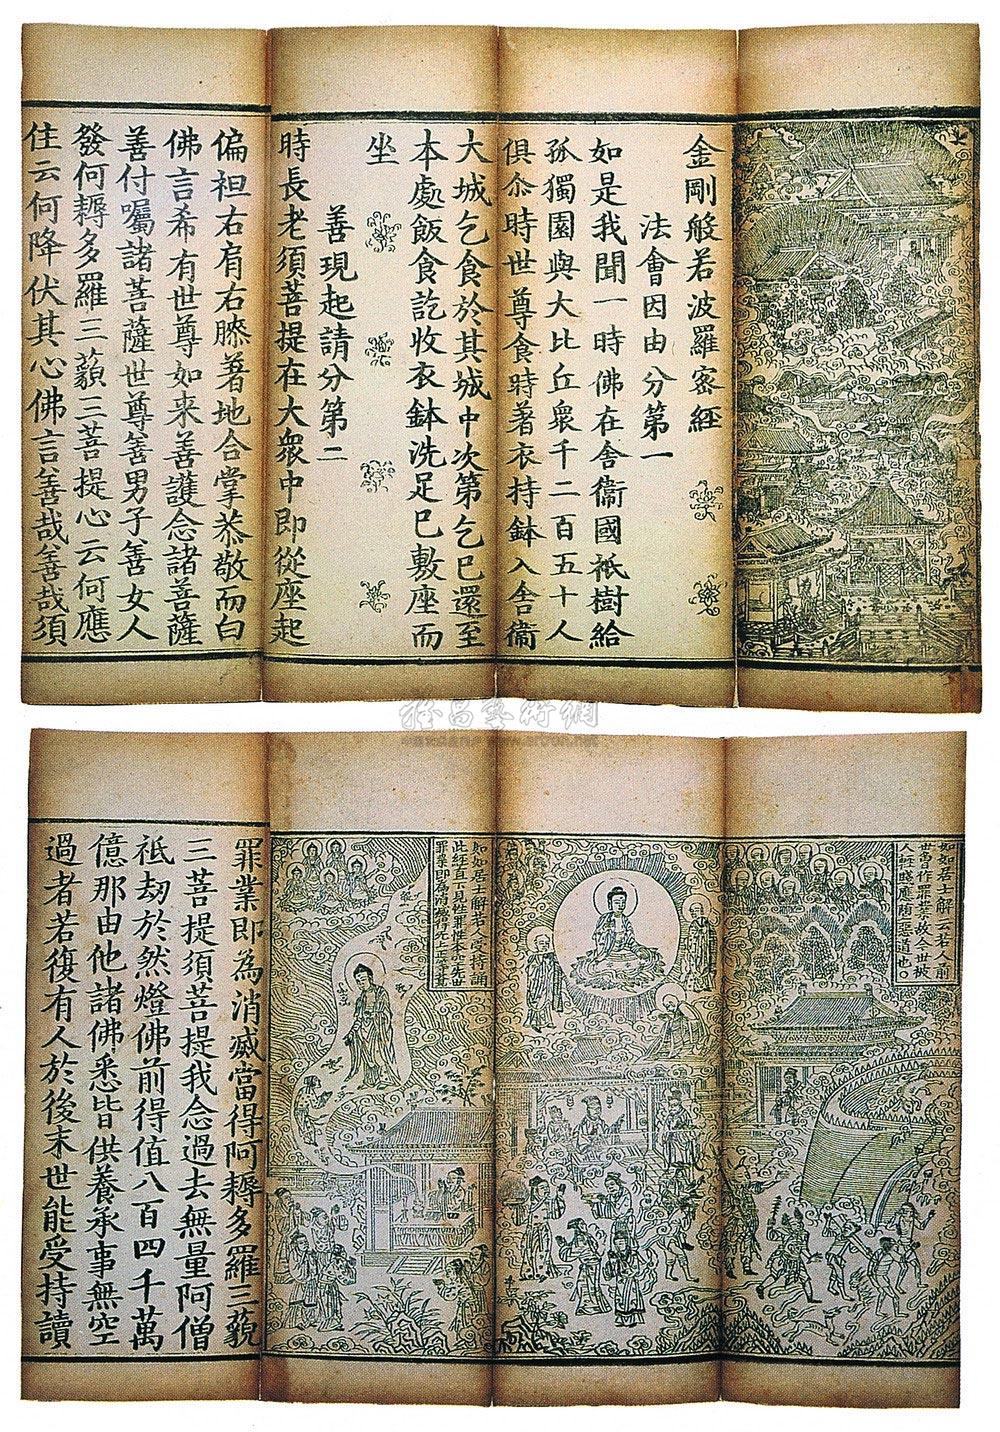 金剛般若波羅密經
法會因由分第一
如是我聞一時佛在舍衞國祇樹給
孤獨園與大比丘衆千二百五十人
俱尒時世尊食時著衣持鉢入舍衞
大城乞食於其城中次第乞已還至
本處飯食訖收衣鉢洗足已敷座而
坐
善現起請分第二
時長老須菩提在大衆中即從座起
偏袒右肩右膝著地合掌恭敬而白
佛言希有世尊如来善護念諸菩薩
善付囑諸菩薩世尊善男子善女人
發何耨多羅三藐三菩提心云何應
住云何降伏其心佛言善哉善哉須
雅昌藝術網
如如居士解云若人前
世當作罪業故今世被
人輕賤應随惡道也
如如居士解若人受持誦
此經直下見性罪業
罪業即爲消滅得
罪業即為消滅當得阿耨多羅三藐
三菩提須菩提我念過去無量阿僧
祇刼於然燈佛前得值八百四千萬
億那由他諸佛悉皆供養承事無空
過者若復有人於後末世能受持讀